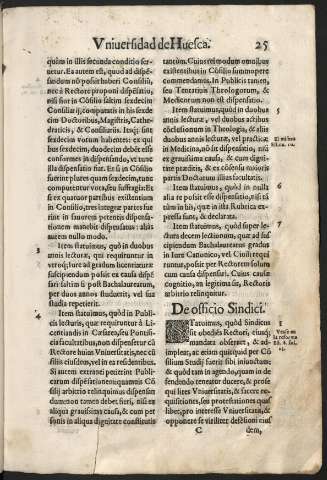 Vniuersidad de Huesca. 25
quàm in illis secunda conditio ser-
uetur. Ea autem est, quod ad dispẽ-
sandum nõ possit haberi Consiliũ,
nec à Rectore proponi dispẽsatio,
nisi sint in Cõsilio saltim sexdecim
Consiliarij, computatis in his sexde
cim Doctoribus, Magistris, Cathe-
draticis, & Consiliariis. Itaq; sint
sexdecim vocum habentes: ex qui
bus sexdecim, duodecim debẽt esse
conformes in dispensando, vt tunc
illa dispensatio fiat. Et si in Cõsilio
fuerint plures quam sexdecim, tunc
computentur vota, seu suffragia: Et
si ex quatuor partibus existentium
in Consilio, tres integræ partes fue
rint in fauorem petentis dispensa-
tionem manebit dispensatus: aliàs
autem nullo modo.
3 Item statuimus, quòd in duobus
annis lecturæ, qui requiruntur in
vtroq; iure ad gradum licentiaturæ
suscipiendum posit ex causa dispẽ
sari saltim si post Bachalaureatum,
per duos annos studuerit, vel sua
studia repetierit.
4 Item statuimus, quòd in Publi-
cis lecturis, quæ requiruntur à Li-
centiandis in Cæsareo, seu Pontifi-
cia facultatibus, non dispensetur cũ
Rectore huius Vniuersitatis, nec cũ
filiis eiusdem, vel in ea residentibus.
Si autem extranei petierint Publi-
carum dispensationem quamuis Cõ
silij arbitrio relinquimus dispensan
dum non tamen debet fieri, nisi ex
aliqua grauissima causa, & cum per
sonis in aliqua dignitate constitutis
tantùm. Cuius rei modum omnibus
existentibus in Cõsilio summopere
commendamus. In Publicis tamen,
seu Tentatiuis Theologorum, &
Medicorum non est dispensatio.
Item statuimus, quòd in duobus 5
annis lecturæ, vel duobus actibus
cõclusionum in Theologia, & illis
duobus annis lecturæ, vel practicæ
in Medicina, nõ sit dispensatio, nisi
ex grauissima causa, & cum digni-
tate præditis, & ex cõsensu maioris
partis Doctorum illius facultatis.
Item statuimus, quòd in nulla 6
alia re possit esse dispensatio, nisi tã
tùm in his, quæ in ista Rubrica ex-
pressa sunt, & declarata.
Item statuimus, quòd super le- 7
ctura decem lectionum, quæ ad sus
cipiendum Bachalaureatus gradum
in Iure Canonico, vel Ciuili requi
runtur, possit per Rectorem solum
cum causa dispensari. Cuius causæ
cognitio, an legitima sit, Rectoris
arbitrio relinquitur.
De officio Sindici.
STatuimus, quòd Sindicus
sit obediẽs Rectori, eiusq;
mandata obseruet, & ad-
impleat, ac etiam quidquid per Cõ
silium Studij fuerit sibi iniunctum;
& quòd tam in agendo, quam in de
fendendo teneatur ducere, & prose
qui lites Vniuersitatis, & facere re-
quisitiones, & protestationes quas
libet, pro interesse Vniuersitatis, &
opponere se viriliter defectioni eius
C dem,